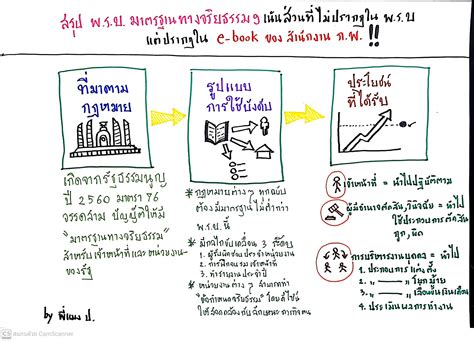 สรุป พ.ร.บ. มาตรฐานทางจริยธรรมฯ เน้นส่วนที่ไม่ปรากฏใน พ.ร.บ
แต่ปรากฏใน e-book ของ สำนักงาน ก.พ. !!
ที่มาตาม
กฎหมาย
รูปแบบ
การใช้บังคับ
ประโยชน์
ที่ได้รับ
เกิดจากรัฐธรรมนูญ
ปี 2560 มาตรา 76
วรรคสาม บัญญัติให้มี
"มาตรฐานทางจริยธรรม"
สำหรับ เจ้าหน้าที่และหน่วยงาน-
ของรัฐ
by พี่แมง ป.
* กฎหมายต่าง ๆ ทุกฉบับ
ต้องมีมาตรฐานไม่ต่ำกว่า
พ.ร.บ. นี้
* มีกลไกขับเคลื่อน 3 ระดับ
1. ผู้รับผิดชอบ ประจำหน่วยงาน
2. การฝึกอบรม เจ้าหน้าที่
3. ทำรายงาน ประจำปี
* หน่วยงาน ต่าง ๆ อาจทำ
"ข้อกำหนดจริยธรรม" โดยดีให้
สอดคล้องกับลักษณะภารกิจตน
เจ้าหน้าที่ = นำไปปฏิบัติตาม
ผู้มีอำนาจตัดสิน, วินิจฉัย = นำไป
ใช้ประกอบการตัดสิน
ถูก, ผิด
การบริหารงานบุคคล = นำไป
1. ประกอบการ แต่งตั้ง
2. โยกย้าย
3. เลื่อนขั้นเงินเดือน
4. ประเมินผลการทำงาน
สแกนด้วย CamScanner